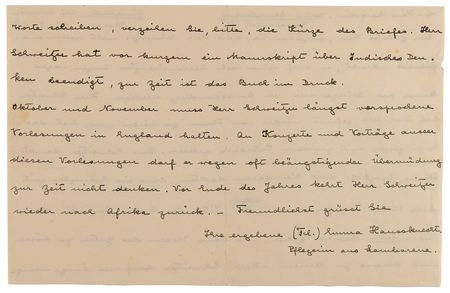 Worte schreiben, verzeihen Sie, bitte, die Kürze des Briefes. Herr
Schweitzer hat vor kurzem ein Manuskript über Indisches Den-
ken beendigt, zur Zeit ist das Buch im Druck.
Oktober und November muss Herr Schweitzer längst versprochene
Vorlesungen in England halten. An Konzerte und Vorträge ausser
diesen Vorlesungen darf er wegen oft beängstigender Übermüdung
zur Zeit nicht denken. Vor Ende des Jahres kehrt Herr Schweitzer
wieder nach Afrika zurück. – Freundlichst grüsst Sie
Ihre ergebene (Frl.) Emma Haussknecht.
Pflegerin aus Lambarene.